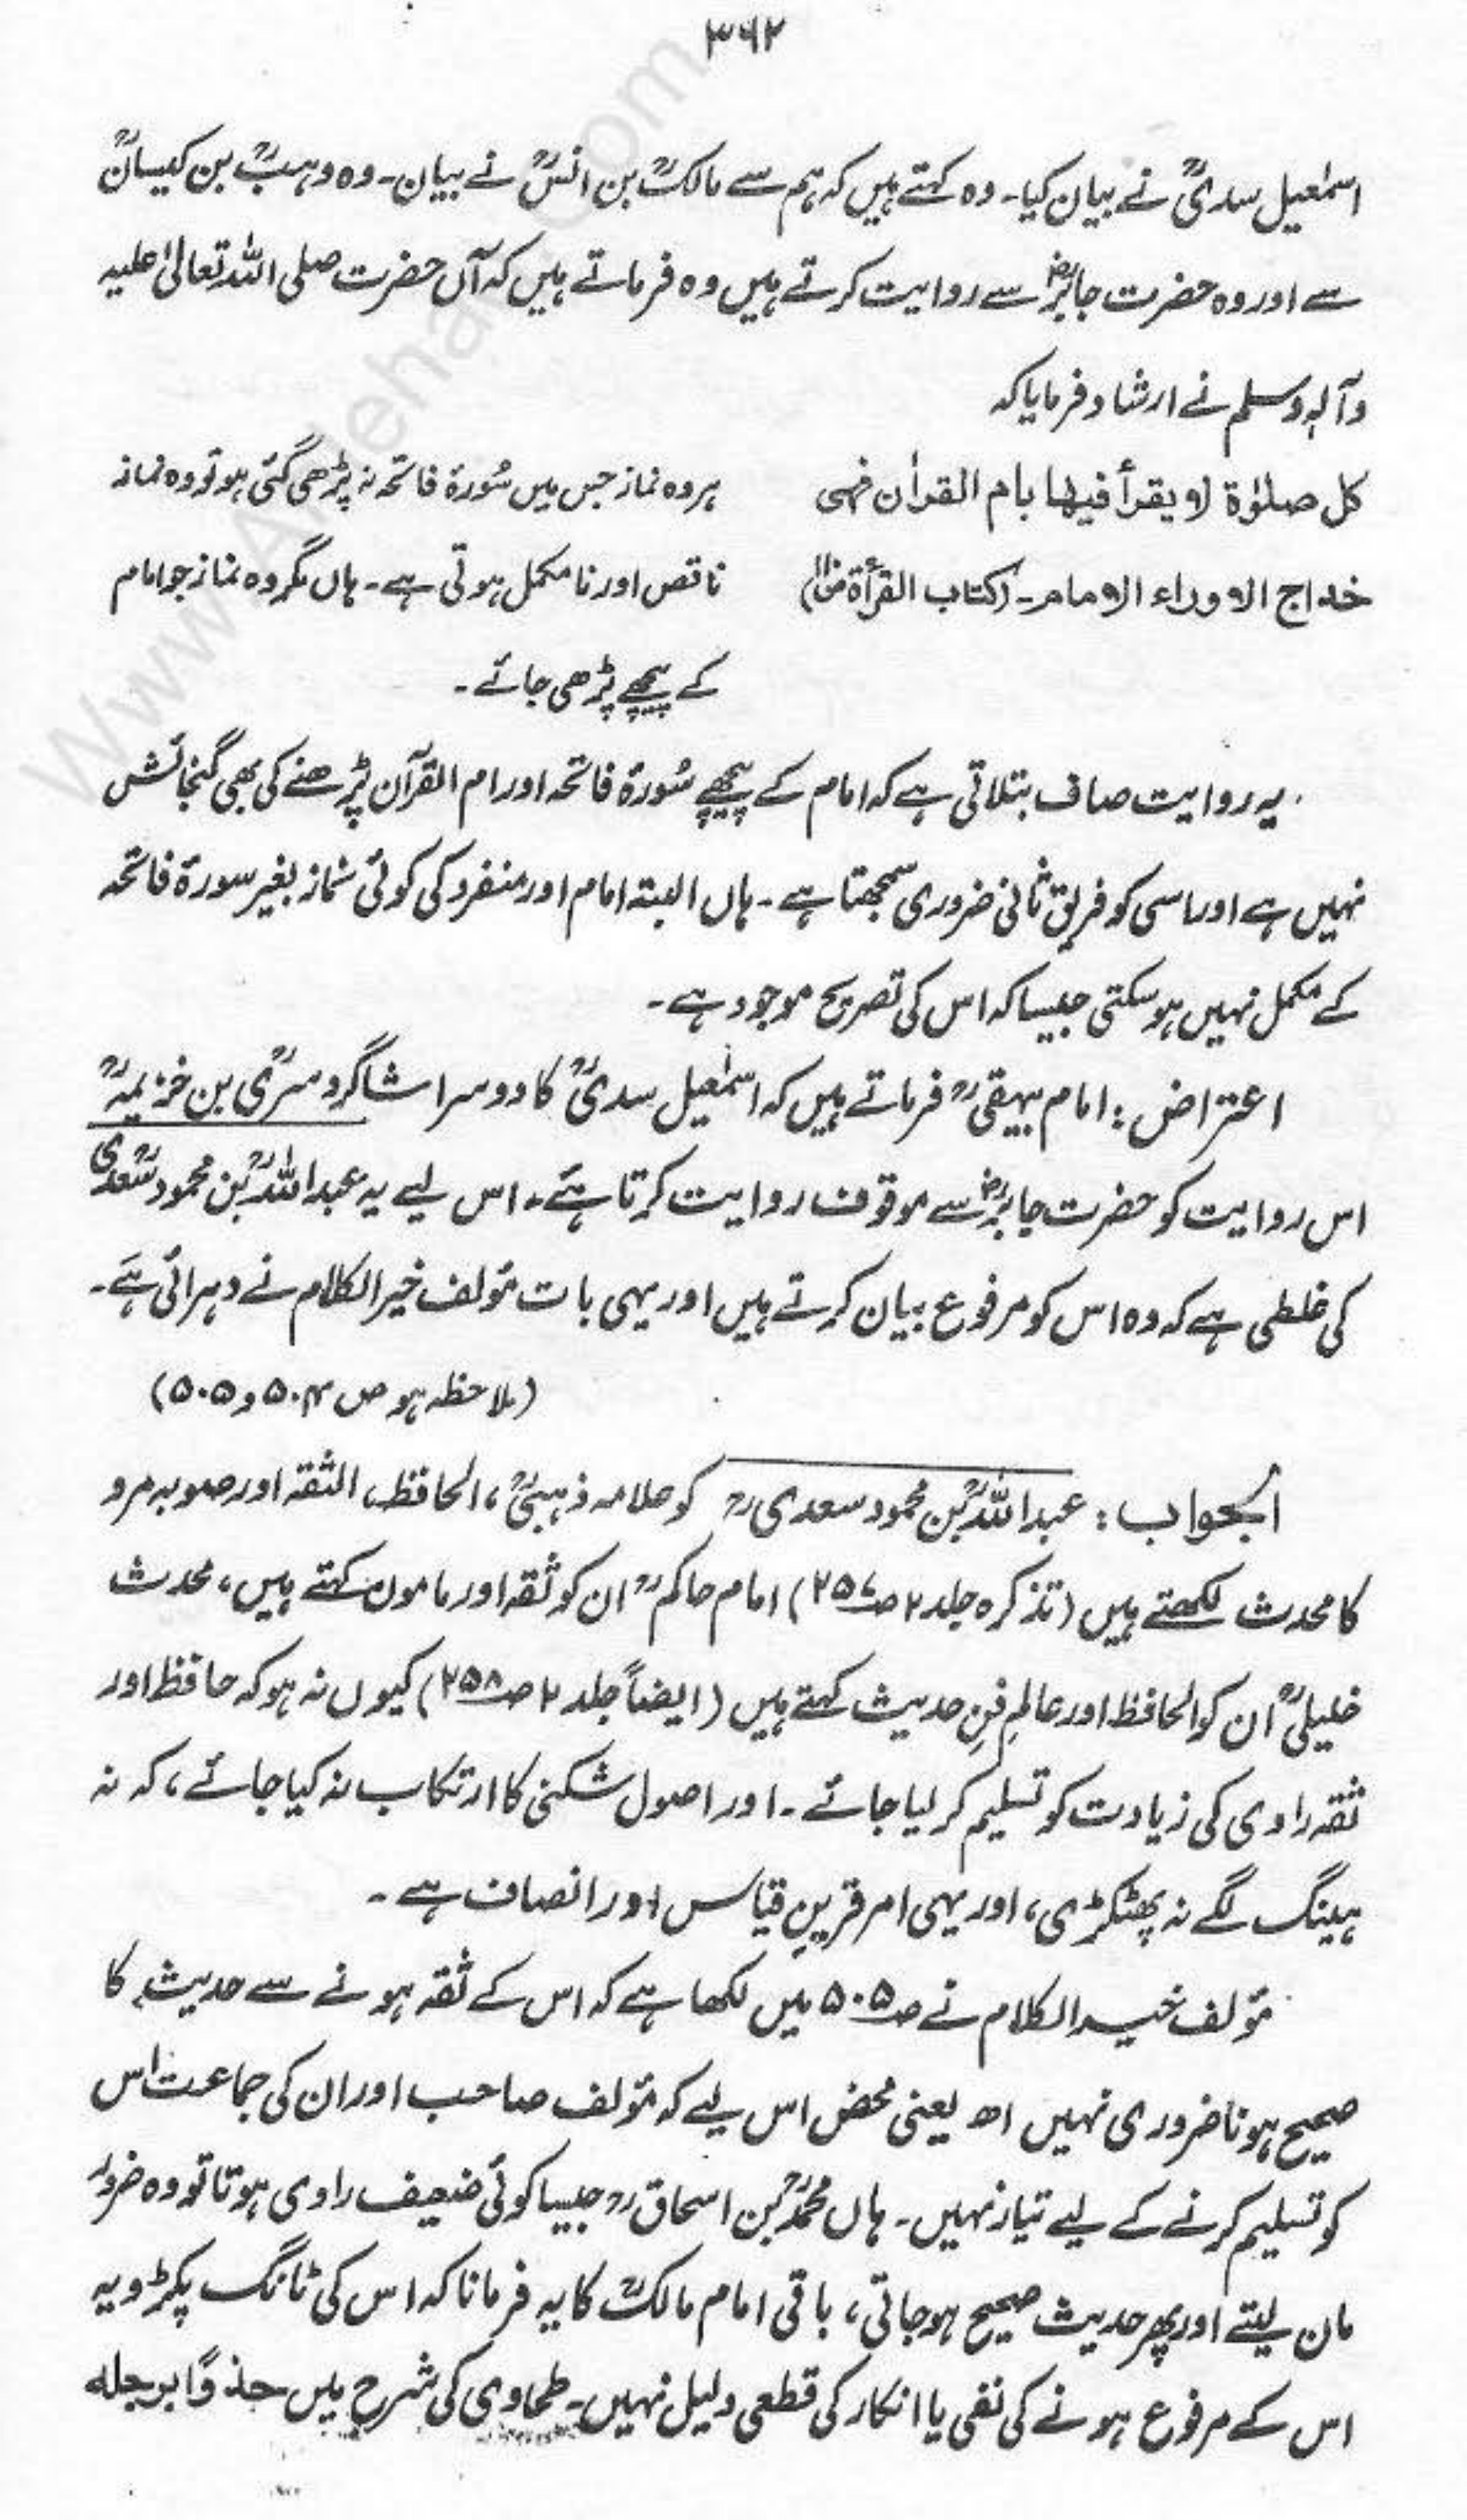 ۳۶۲
اسمٰعیل سدیؒ نے بیان کیا۔ وہ کہتے ہیں کہ ہم سے مالکؒ بن انسؒ نے بیان۔ وہ وہبؒ بن کیسانؒ
سے اور وہ حضرت جابرؓ سے روایت کرتے ہیں وہ فرماتے ہیں کہ آں حضرت صلی اللہ تعالیٰ علیہ
وآلہٖ وسلم نے ارشاد فرمایا کہ
کل صلوٰۃ لا یقرأ فیها بام القراٰن فهی
ہر وہ نماز جس میں سُورۃ فاتحہ نہ پڑھی گئی ہو تو وہ نماز
خداج الا وراء الامام۔ (کتاب القرأۃ
ناقص اور نامکمل ہوتی ہے۔ ہاں مگر وہ نماز جو امام
کے پیچھے پڑھی جائے۔
یہ روایت صاف بتلاتی ہے کہ امام کے پیچھے سُورۃ فاتحہ اور ام القرآن پڑھنے کی بھی گنجائش
نہیں ہے اور اسی کو فریق ثانی ضروری سمجھتا ہے۔ ہاں البتہ امام اور منفرد کی کوئی نماز بغیر سورۃ فاتحہ
کے مکمل نہیں ہو سکتی جیسا کہ اس کی تصریح موجود ہے۔
اعتراض: امام بیہقیؒ فرماتے ہیں کہ اسمٰعیل سدیؒ کا دوسرا شاگرد سریؒ بن خزیمہؒ
اس روایت کو حضرت جابرؓ سے موقوف روایت کرتا ہے۔ اس لیے یہ عبداللہؒ بن محمود سعدیؒ
کی غلطی ہے کہ وہ اس کو مرفوع بیان کرتے ہیں اور یہی بات مؤلف خیر الکلام نے دہرائی ہے۔
(ملاحظہ ہو ص ۵۰۴ و ۵۰۵)
الجواب: عبداللہؒ بن محمود سعدیؒ کو علامہ ذہبیؒ، الحافظ، الثقہ اور صوبہ مرو
کا محدث لکھتے ہیں (تذکرہ جلد ۲ ص۲۵۷) امام حاکمؒ ان کو ثقہ اور مامون کہتے ہیں، محدث
خلیلیؒ ان کو الحافظ اور عالمِ فنِ حدیث کہتے ہیں (ایضاً جلد ۲ ص۲۵۸) کیوں نہ ہو کہ حافظ اور
ثقہ راوی کی زیادت کو تسلیم کر لیا جائے۔ اور اصول شکنی کا ارتکاب نہ کیا جائے، کہ نہ
ہینگ لگے نہ پھٹکڑی، اور یہی امر قرینِ قیاس اور انصاف ہے۔
مؤلف خیر الکلام نے ص۵۰۵ میں لکھا ہے کہ اس کے ثقہ ہونے سے حدیث کا
صحیح ہونا ضروری نہیں اھ یعنی محض اس لیے کہ مؤلف صاحب اور ان کی جماعت اس
کو تسلیم کرنے کے لیے تیار نہیں۔ ہاں محمدؒ بن اسحاقؒ جیسا کوئی ضعیف راوی ہوتا تو وہ ضرور
مان لیتے اور پھر حدیث صحیح ہو جاتی، باقی امام مالکؒ کا یہ فرمانا کہ اس کی ٹانگ پکڑو یہ
اس کے مرفوع ہونے کی نفی یا انکار کی قطعی دلیل نہیں۔ طحاوی کی شرح میں خذوا برجله